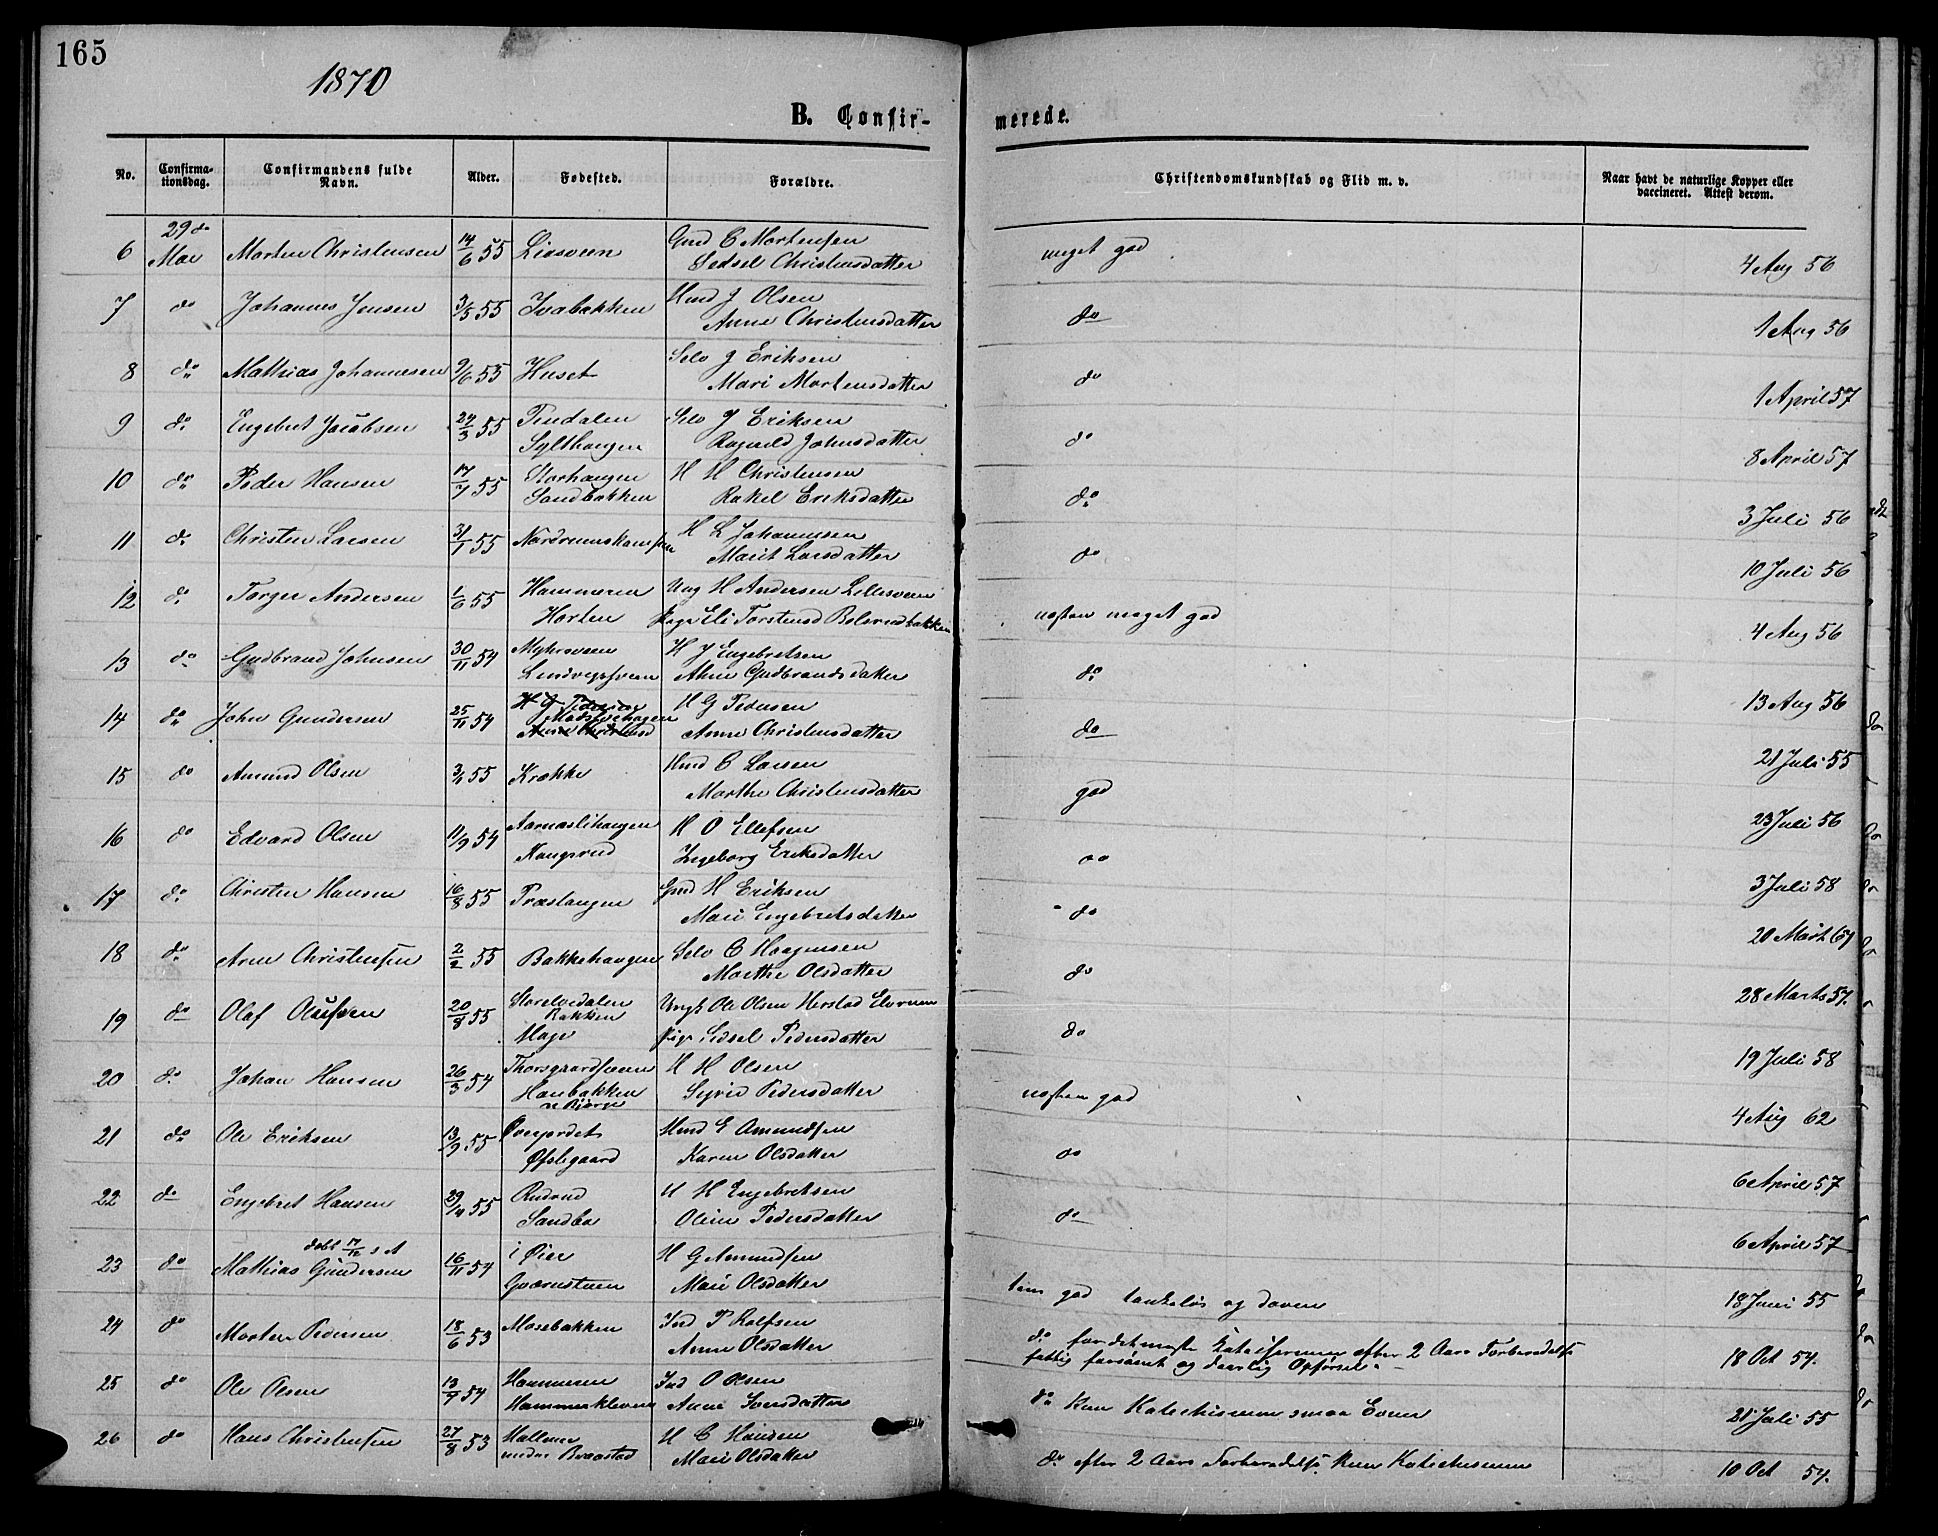 165
1870
B. Confir- merede.
No. Confirma-tionsdag. Confirmandens fulde Navn. Alder. Fødested. Forældre. Christendomskundskab og Flid m. v. Naar havt de naturlige Kopper eller vaccineret. Attest derom.
6 29de Mai Morten Christensen 14/6 55 Gmd C Mortensen Sidsel Christensdatter meget god 4 Aug 56
7 do Johannes Jensen 3/5 55 Ivabakken Hmd J Olsen Anne Christensdatter do 1 Aug 56
8 do Mathias Johannesen 9/6 55 Huset Selv J Eriksen Mari Mortensdatter do 1 April 57
9 do Engebret Jacobsen 24/3 55 Selv J Eriksen Ragnild Johnsdatter do 8 April 57
10 do Peder Hansen 17/7 55 Storhaugen Sandbakken H H Christensen Rakel Eriksdatter do 3 Juli 56
11 do Christen Larsen 31/1 55 H L Johannesen Marit Larsdatter do 10 Juli 56
12 do Torger Andersen 1/6 55 Hammeren Horten Ung H Andersen Lillesveen Pige Eli Torstensd næsten meget god 4 Aug 56
13 do Gudbrand Johnsen 30/11 54 Myhrsveen H J Engebretsen Anne Gudbrandsdatter do 13 Aug 56
14 do John Gundersen 25/11 54 H G Pedersen Anne Christensd H G Pedersen Anne Christensdatter do 21 Juli 55
15 do Amund Olsen 3/1 55 Krække Hmd O Larsen Marthe Christensdatter god 23 Juli 56
16 do Edvard Olsen 11/9 54 Kongsrud H O Ellefsen Ingeborg Eriksdatter do 3 Juli 58
17 do Christen Hansen 16/8 55 Gmd H Eriksen Mari Engebretsdatter do 20 Marts
18 do Arne Christensen 2/2 55 Bakkehaugen Selv C Haagensen Marthe Olsdatter do 28 Marts 57.
19 do Olaf Olufsen 20/8 55 Bakken Ungk Ole Olsen Pige Sidsel Pedersdatter do 19 Juli 58
20 do Johan Hansen 26/3 54 Haubakken H H Olsen Sigrid Pedersdatter næsten god 4 Aug 62
21 do Ole Eriksen 13/9 55 Øvergordet Øfslegaard Hmd E Amundsen Karen Olsdatter do 6 April 57
22 do Engebret Hansen 29/4 55 Rudsrud Sandbo H H Engebretsen Oline Pedersdatter do 6 April 57
23 do Mathias Gundersen døbt 17/12 s A 16/11 54 i Øier Gværnstuen H G Amundsen Mari Olsdatter tem god tankeløs og doven 18 Juni 55
24 do Morten Pedersen 18/6 53 Mosebakken Ind P Rolfsen Anne Olsdatter do for det meste Katechismen efter 2 Aars Forberedelse fattig forsømt og daarlig Opførsel 18 Oct 54.
25 do Ole Olsen 13/7 54 Hammeren Hammerkleven Ind O Olsen Anne Iversdatter do Kun Katechismen smaa Evner 21 Juli 55
26 do Hans Christensen 27/8 53 H C Hansen Mari Olsdatter do efter 2 Aars Forberedelse kun Katechismen 10 Oct 54.